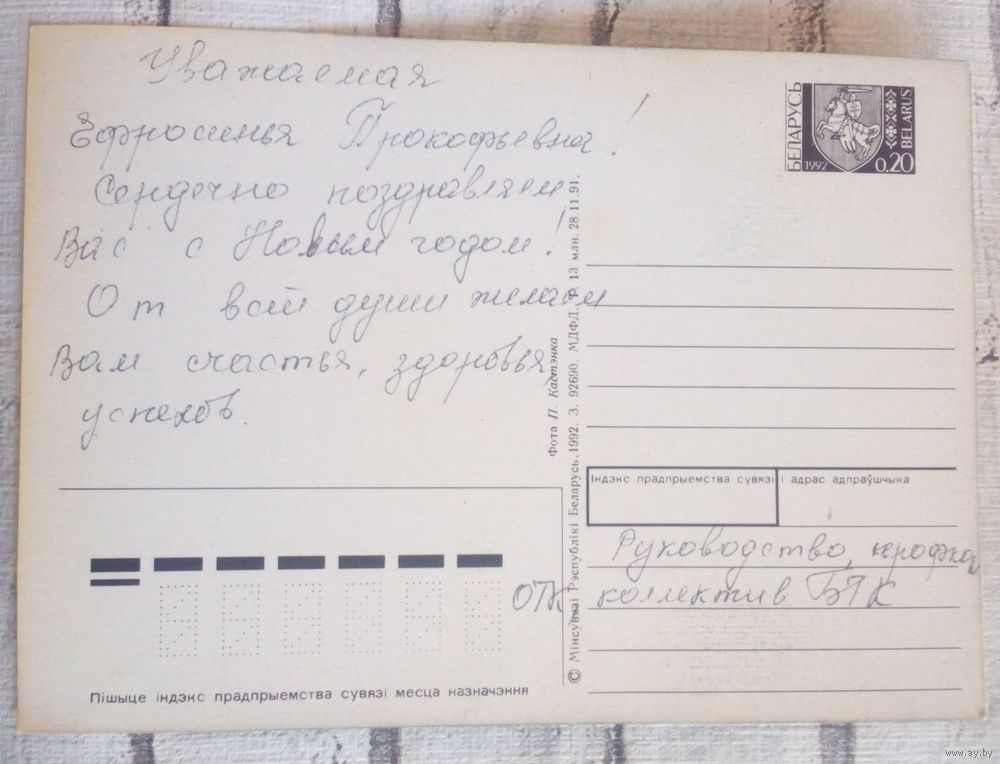 Уважаемая
Ефросинья Прокофьевна!
Сердечно поздравляем
Вас с Новым годом!
От всей души желаем
Вам счастья, здоровья,
успехов.
БЕЛАРУСЬ
1992
0,20
BELARUS
Фота П. Кастэнка
© Мінсувязі Рэспублікі Беларусь, 1992. З. 92690. МДФД. Т. 13 млн. 28.11.91.
Індэкс прадпрыемства сувязі і адрас адпраўшчыка
Руководство, профком
ОТК, коллектив БТК
Пішыце індэкс прадпрыемства сувязі месца назначэння
www.ay.by